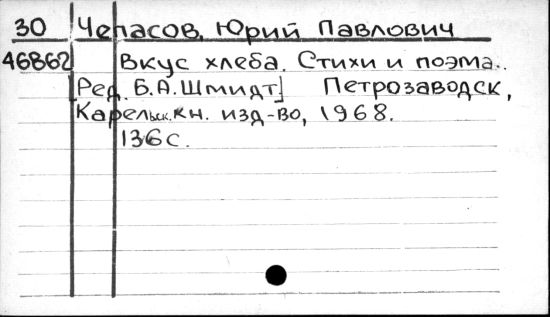 30 Чепасов, Юрий Павлович
46862 Вкус хлеба. Стихи и поэма..
[Ред. Б.А.Шмидт] Петрозаводск,
Карельск.кн. изд-во, 1968.
136с.